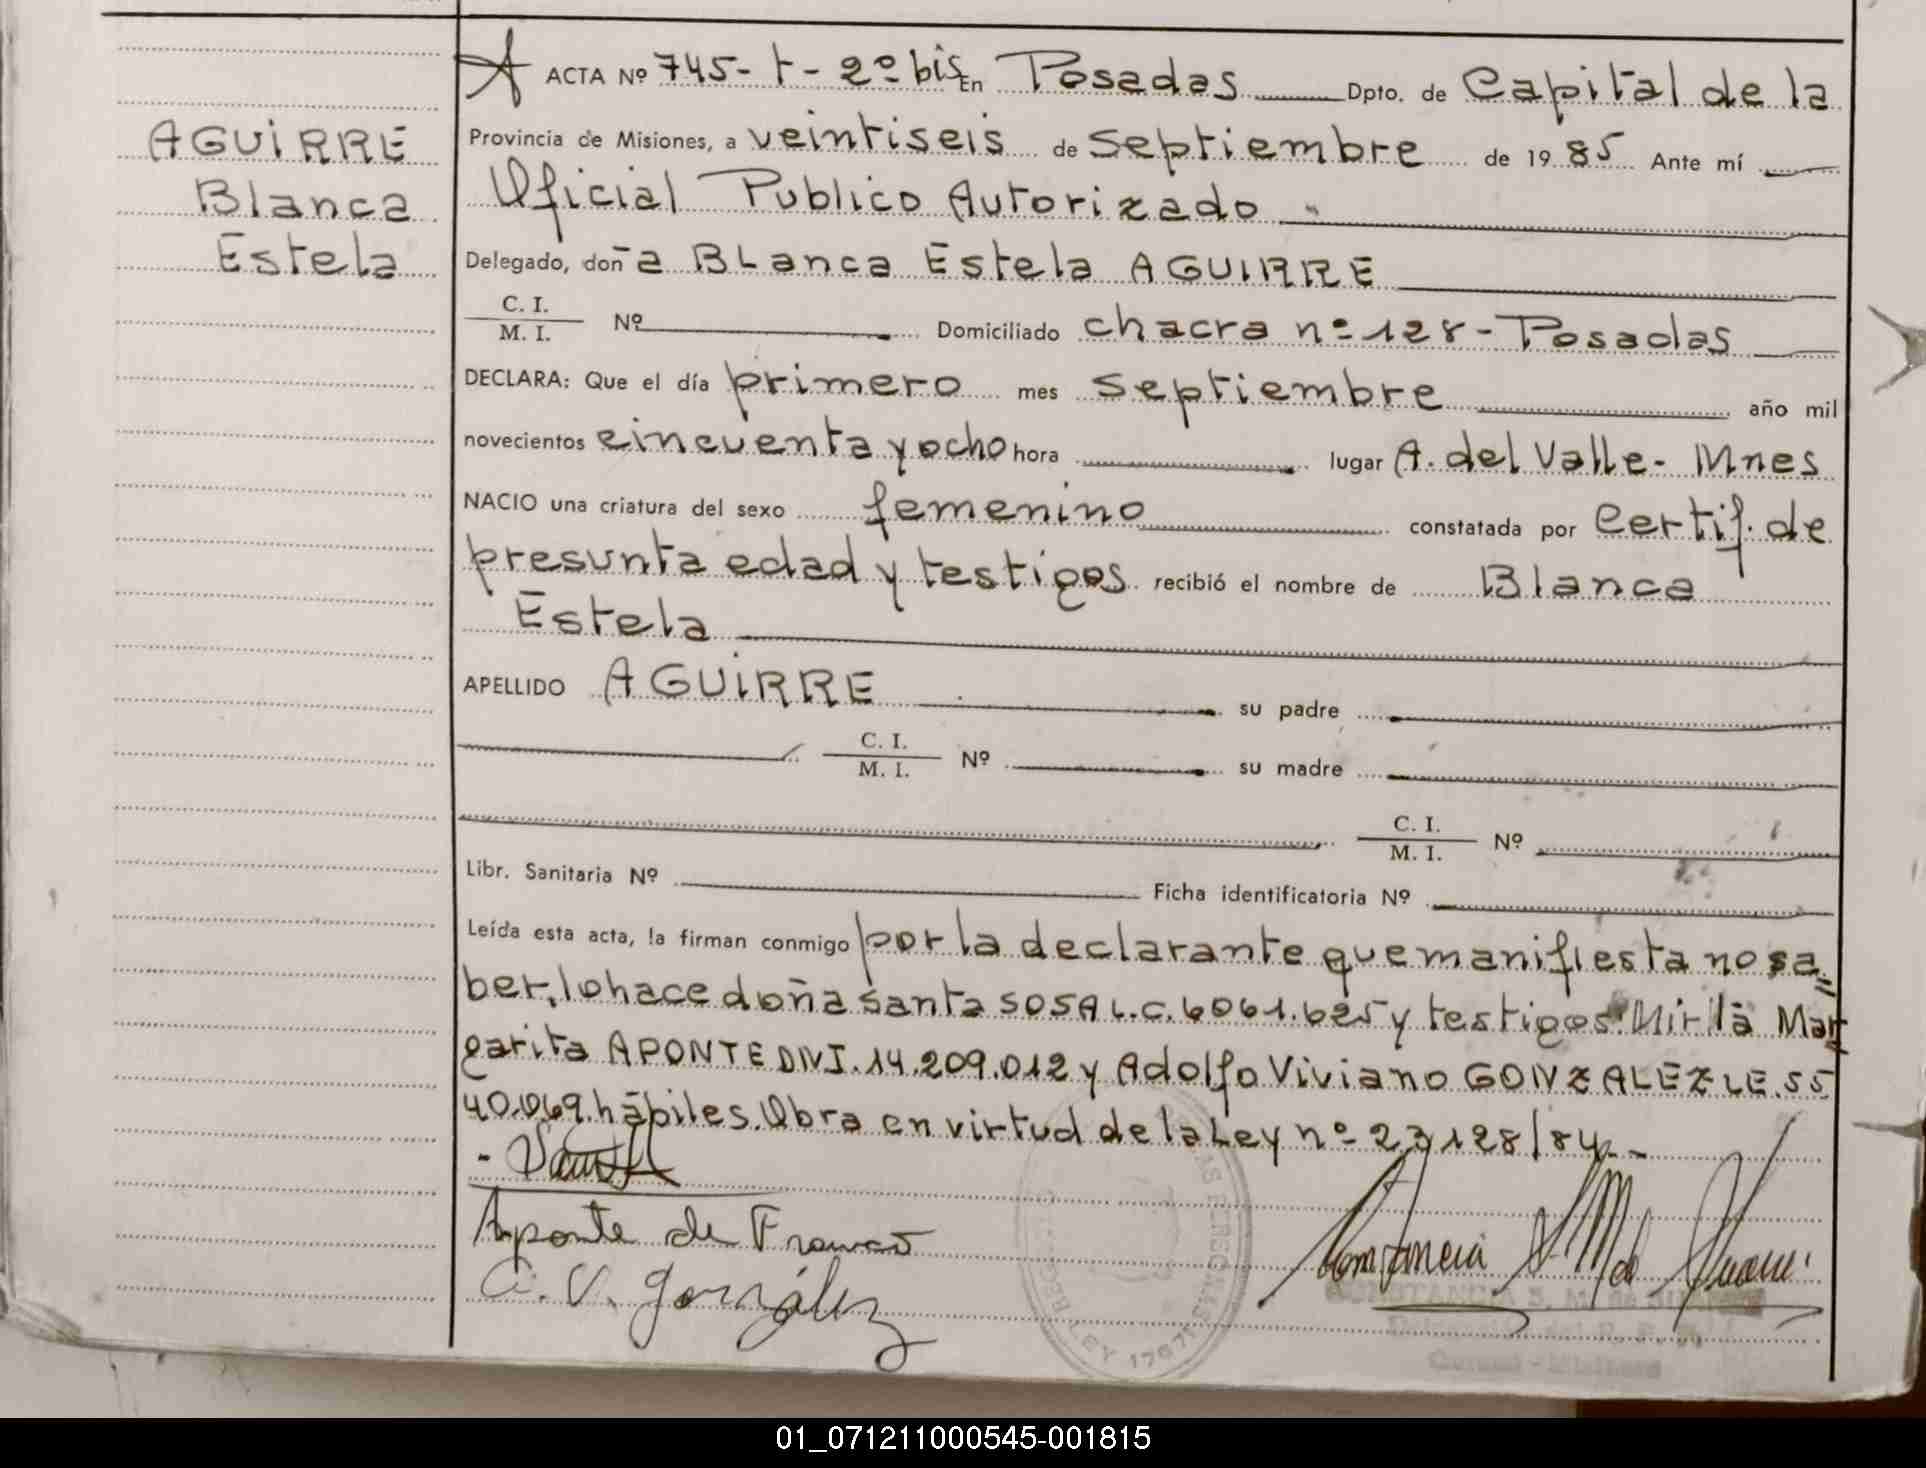 AGUIRRE
Blanca
Estela
A ACTA Nº 745-t-2º bis En Posadas Dpto. de Capital de la
Provincia de Misiones, a veintiseis de septiembre de 1985 Ante mí
Oficial Publico Autorizado
Delegado, doña Blanca Estela AGUIRRE
C. I.
M. I. Nº Domiciliado chacra nº 128 - Posadas
DECLARA: Que el día primero mes septiembre año mil
novecientos cincuenta y ocho hora lugar A. del Valle - Mnes
NACIO una criatura del sexo femenino constatada por Certif. de
presunta edad y testigos recibió el nombre de Blanca
Estela
APELLIDO AGUIRRE su padre
C. I.
M. I. Nº su madre
C. I.
M. I. Nº
Libr. Sanitaria Nº Ficha identificatoria Nº
Leída esta acta, la firman conmigo por la declarante que manifiesta no sa=
ber, lo hace doña Santa SOSA L.C. 6061.625 y testigos: Mirla Mar
garita APONTE DNI. 14.209.012 y Adolfo Viviano GONZALEZ LE. 55
40.069. hábiles. Obra en virtud de la Ley nº 23128/84.-
Aponte de Franco
A. V. González
LEY 1767
CONSTANCIA S. M. de
01_071211000545-001815